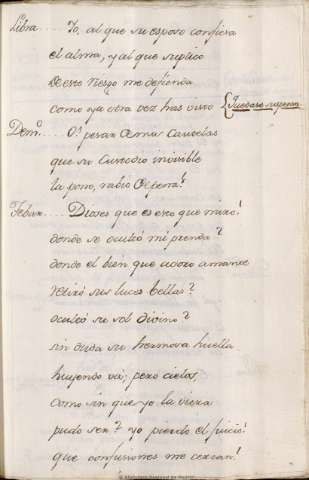 Libra.... Yo, al que su esposo confiesa
el alma, y al que suplico
de este riesgo me defienda
como ya otra vez has visto {Quedase suspensa
Demº.... O! pesar de mis cautelas
que su custodio invisible
la pone, rabio de pena!
Feban.... Dioses que es esto que miro!
donde se ocultó mi prenda?
donde el bien que adoro amante
retiró sus luces bellas?
ocultó su sol divino?
sin duda su hermosa huella
huyendo vá; pero cielos,
como sin que yo la viera
pudo ser? yo pierdo el juicio!
que confusiones me cercan!